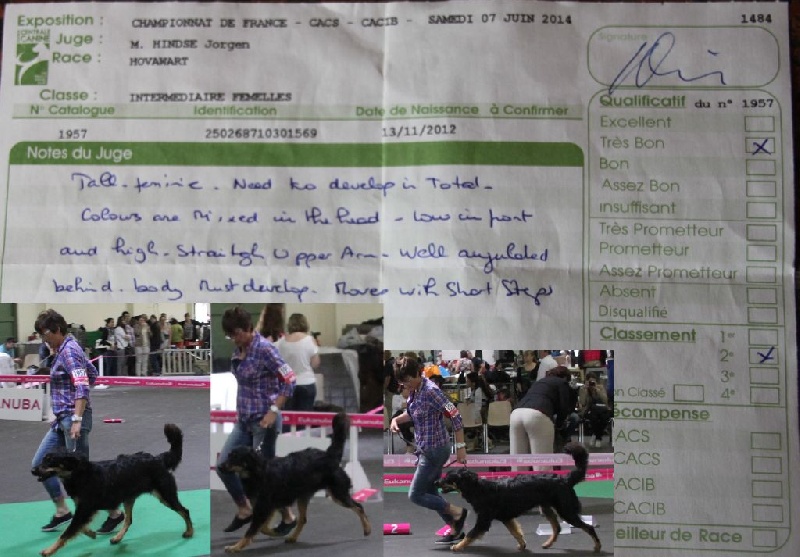 Exposition : CHAMPIONNAT DE FRANCE - CACS - CACIB - SAMEDI 07 JUIN 2014 1484
CENTRALE CANINE
Juge : M. HINDSE Jorgen
Race : HOVAWART
Classe : INTERMEDIAIRE FEMELLES
N° Catalogue Identification Date de Naissance à Confirmer
1957 250268710301569 13/11/2012
Notes du Juge
Tall - feminie - Need to develop in Total -
Colours are Mixed in the head - Low in front
and high - Straitgh Upper Arm - Well angulated
behind - body Must develop - Moves with Short Steps
Signature
Qualificatif du n° 1957
Excellent
Très Bon X
Bon
Assez Bon
Insuffisant
Très Prometteur
Prometteur
Assez Prometteur
Absent
Disqualifié
Classement 1e
2e X
3e
on Classé 4e
écompense
ACS
CACS
ACIB
CACIB
eilleur de Race
ANUBA
Eukanuba
?